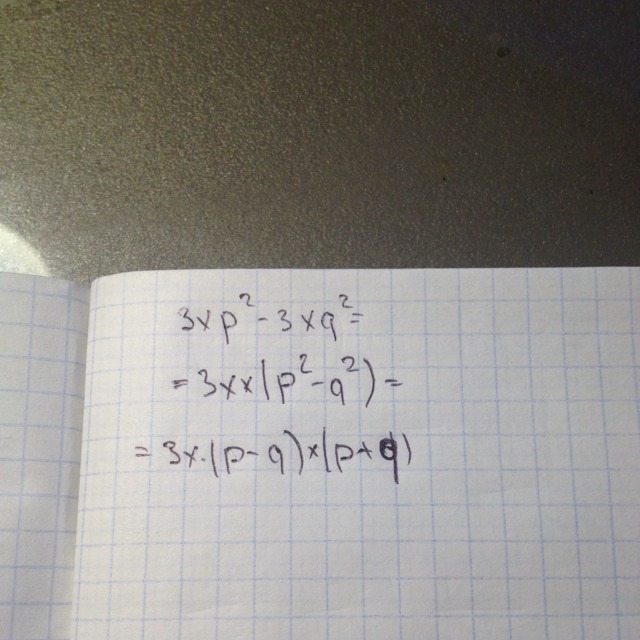 3xp²-3xq²=
=3xx(p²-q²)=
=3x·(p-q)×(p+q)